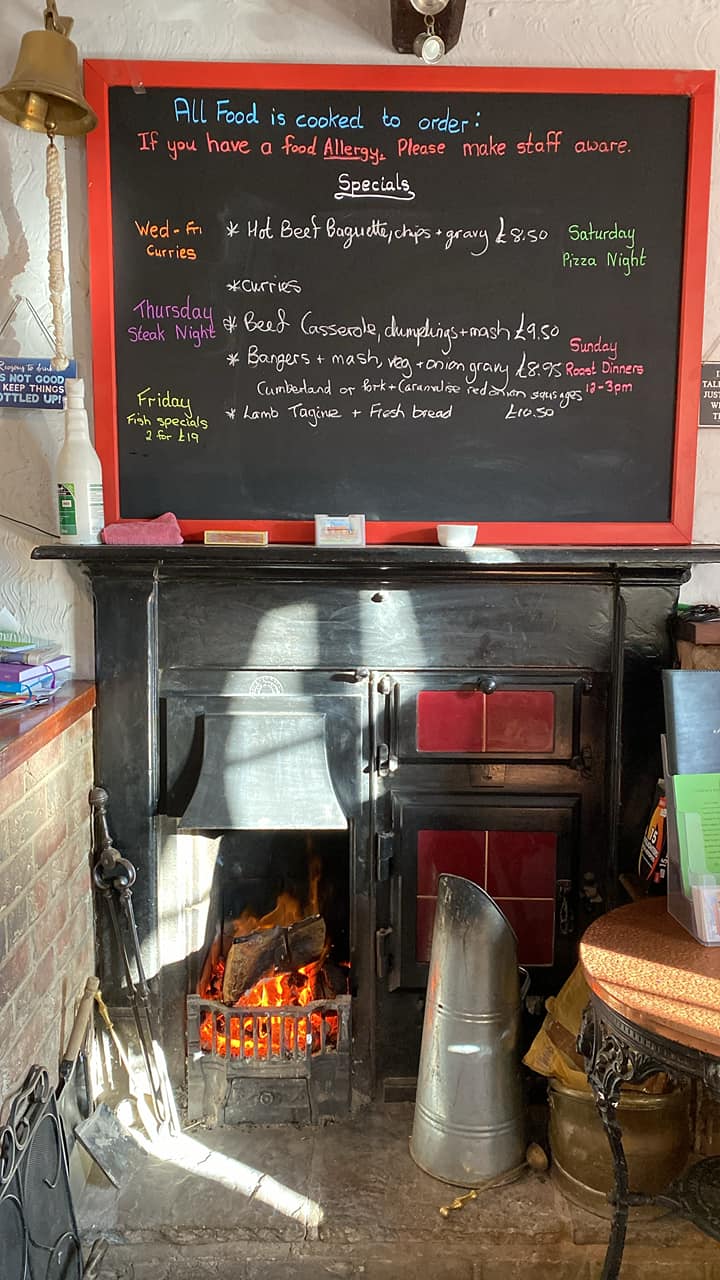 All Food is cooked to order:
If you have a food Allergy, Please make staff aware.
Specials
Wed - Fri
Curries
* Hot Beef Baguette, chips + gravy £8.50
Saturday
Pizza Night
*Curries
Thursday
Steak Night
* Beef Casserole, dumplings + mash £9.50
* Bangers + mash, veg + onion gravy £8.95
Cumberland or Pork + Caramalise red onion sausages
Sunday
Roast Dinners
12-3pm
Friday
Fish specials
2 for £19
* Lamb Tagine + Fresh bread £10.50
S NOT GOOD
KEEP THINGS
OTTLED UP!